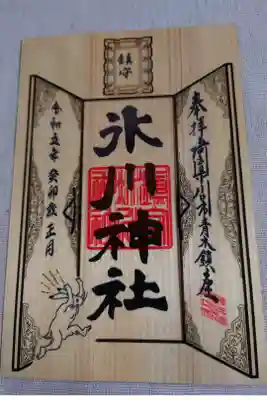 鎮守
奉拝 川口市青木鎮座
氷川神社
令和五年 癸卯歳 正月